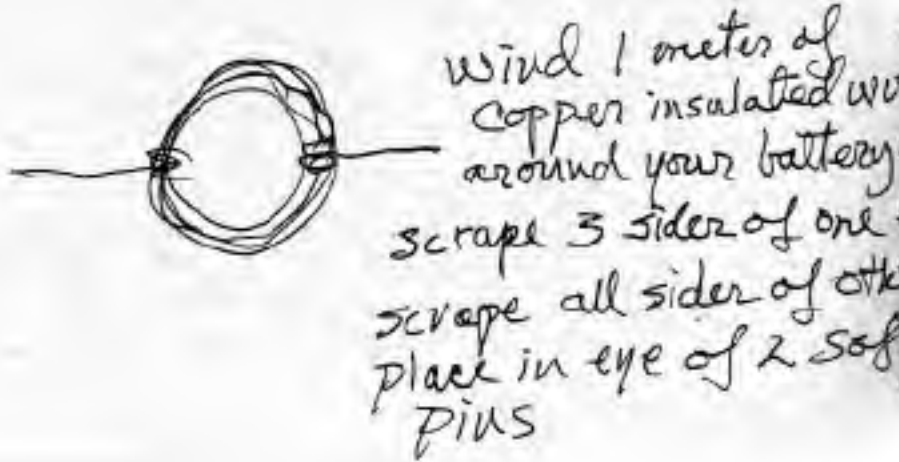 wind 1 meter of
copper insulated
around your battery
scrape 3 sides of one
scrape all sides of
place in eye of 2
pins